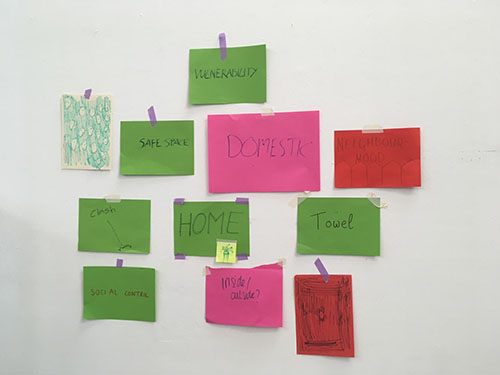 VULNERABILITY
SAFE SPACE
DOMESTIC
NEIGHBOUR
HOOD
Clash
HOME
Towel
SOCIAL CONTROL
Inside/
outside?